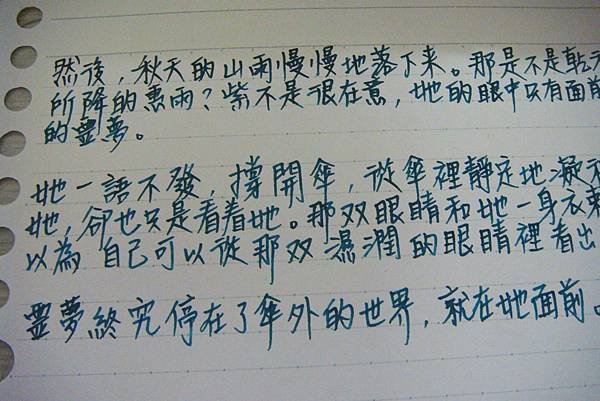 然後，秋天的山雨慢慢地落下来。那是不是乾
所降的惠雨？紫不是很在意，她的眼中只有面前
的靈夢。
她一語不發，撐開傘，從傘裡靜定地凝
她，卻也只是看着她。那双眼睛和她一身衣
以為自己可以從那双濕潤的眼睛裡看出
靈夢終究停在了傘外的世界，就在她面前。